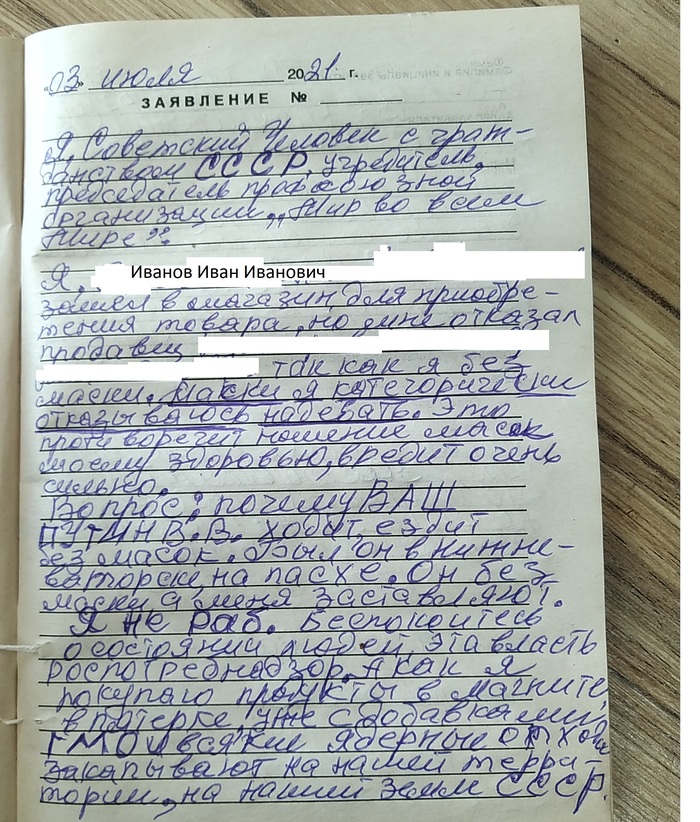 «03» июля 2021 г.
ЗАЯВЛЕНИЕ № ______
Я, Советский Человек с граж-
данством СССР, учредитель,
председатель профсоюзной
организации „Мир во всем
Мире”:
Я, Иванов Иван Иванович
зашел в магазин для приобре-
тения товара, но мне отказал
продавец
так как я без
маски. Маски я категорически
отказываюсь надевать. Это
противоречит ношение масок
моему здоровью, вредит очень
сильно.
Вопрос: почему ВАШ
ПУТИН В.В. ходит, ездит
без масок. Был он в Нижне-
ваторске на пасхе. Он без
маски, а меня заставляют.
Я не раб. Беспокоитесь
о состоянии людей, эта власть
роспотребнадзор. А как я
покупаю продукты в магните
в пятерке, уже с добавками
ГМО и всякие ядерные отходы
закапывают на нашей терри-
тории, на нашей земли СССР.